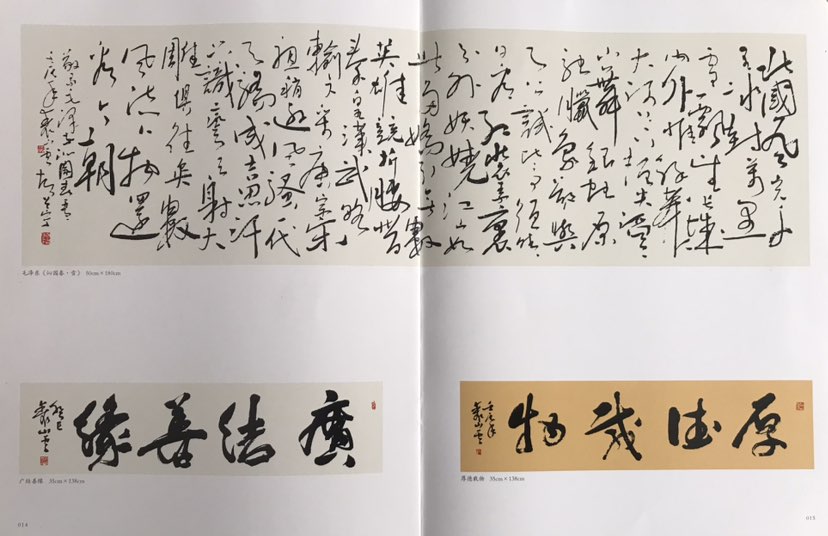 北國風光千
里冰封萬里
雪飄望長城
內外惟餘莽々
大河上下頓失滔々
山舞銀蛇原
馳蠟象欲與
天公試比高須晴
日看紅裝素裹
分外妖嬈江山如
此多嬌引無數
英雄競折腰惜
秦皇漢武略
輸文采唐宗宋
祖稍遜風騷一代
天驕成吉思汗
只識彎弓射大
雕俱往矣數
風流人物還
看今朝
毛澤東沁園春雪
壬辰年
毛泽东《沁园春·雪》 50cm×180cm
廣結善緣
癸巳
广结善缘 35cm×136cm
厚德載物
壬辰年
厚德载物 35cm×136cm
014
015